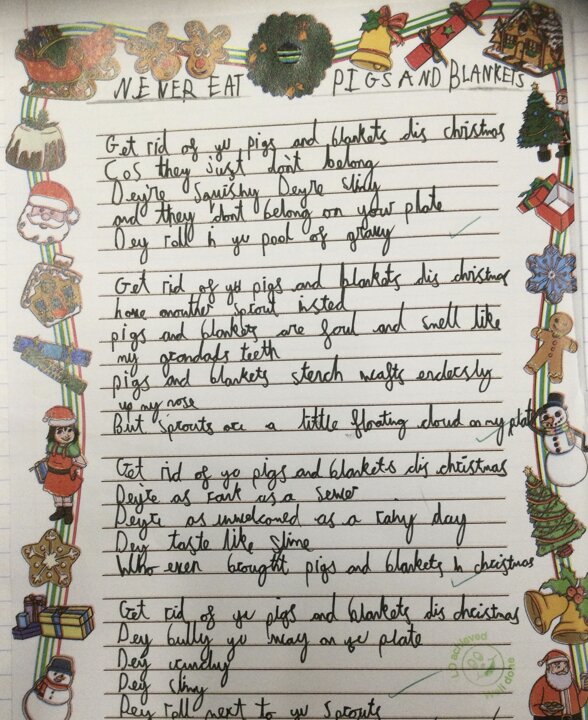 NEVER EAT PIGS AND BLANKETS
Get rid of yu pigs and blankets dis christmas
Cos they just don't belong
Dey're Squishy Deyre slidy
and they don't belong on your plate
Dey roll in yu pool of gravy
Get rid of yu pigs and blankets dis christmas
have another sprout insted
pigs and blankets are foul and smell like
my grandads teeth
pigs and blankets stench wafts endersly
up my nose
But sprouts are a little floating cloud on my plate
Get rid of yo pigs and blankets dis christmas
Dey're as rank as a sewer
Deyre as unwelcomed as a rainy day
Dey taste like slime
Who even brought pigs and blankets in christmas
Get rid of yu pigs and blankets dis christmas
Dey bully yu way on yu plate
Dey crunchy
Dey slimy
Dey roll next to yu sprouts
LO achieved
Well done